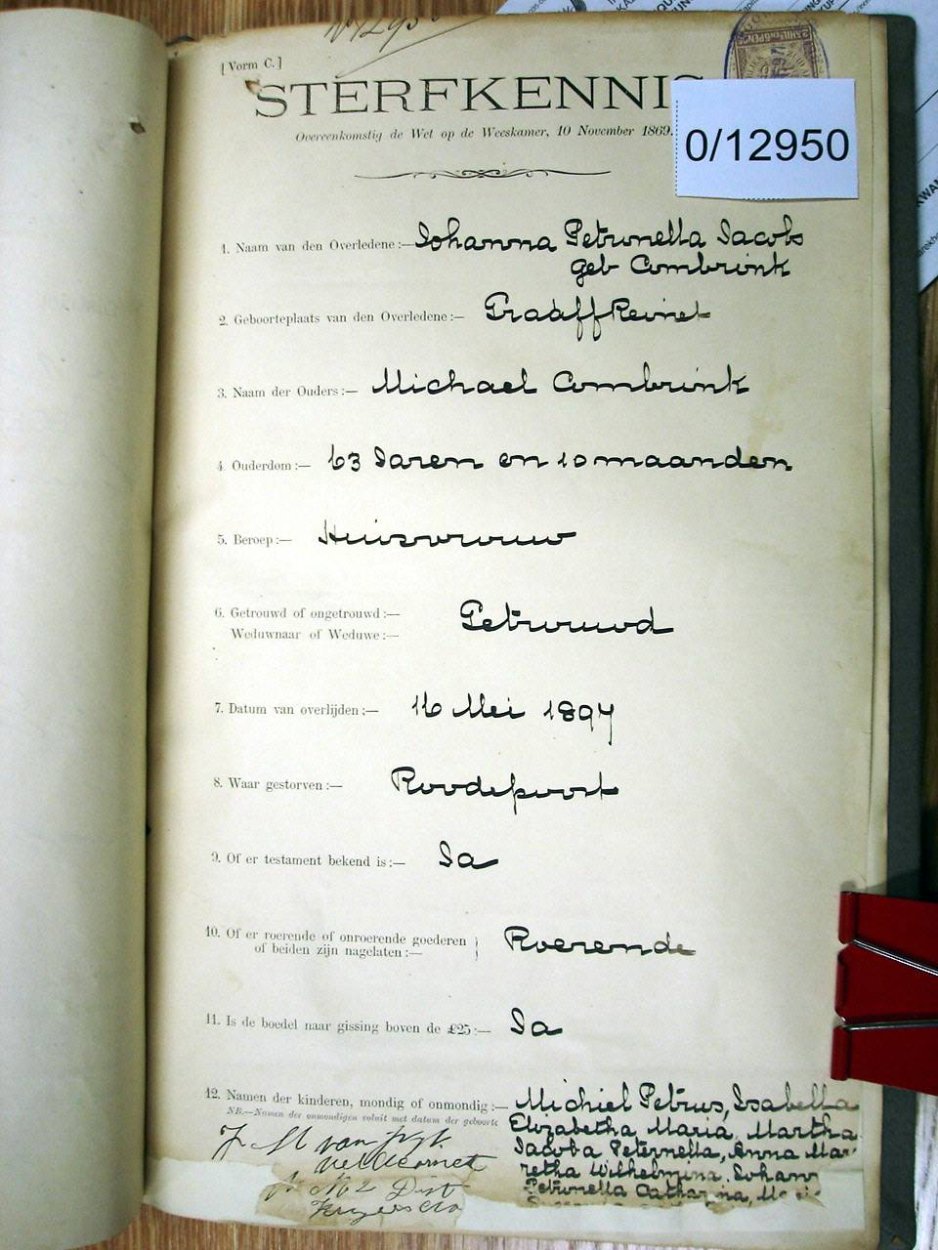 No 12950
[Vorm C.]
STERFKENNIS
Overeenkomstig de Wet op de Weeskamer, 10 November 1869.
0/12950
1. Naam van den Overledene:— Johanna Petronella Jacobs
geb Combrink
2. Geboorteplaats van den Overledene:— Graaff Reinet
3. Naam der Ouders:— Michael Combrink
4. Ouderdom:— 63 Jaren en 10 maanden
5. Beroep:— Huisvrouw
6. Getrouwd of ongetrouwd:— Getrouwd
Weduwnaar of Weduwe:—
7. Datum van overlijden:— 16 Mei 1897
8. Waar gestorven:— Roodepoort
9. Of er testament bekend is:— Ja
10. Of er roerende of onroerende goederen
of beiden zijn nagelaten:— Roerende
11. Is de boedel naar gissing boven de £25:— Ja
12. Namen der kinderen, mondig of onmondig:— Michiel Petrus, Isabella
NB.—Namen der onmondigen voluit met datum der geboorte
Elizabetha Maria, Martha
Jacoba Peternella, Anna Mar
retha Wilhelmina. Johann
Petronella Catharina,
van Wyk
Veldcornet
No 2 Dist